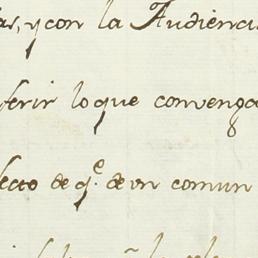 as, y con la Audiencia
ferir lo que convenga
fecto de q.e de un comun